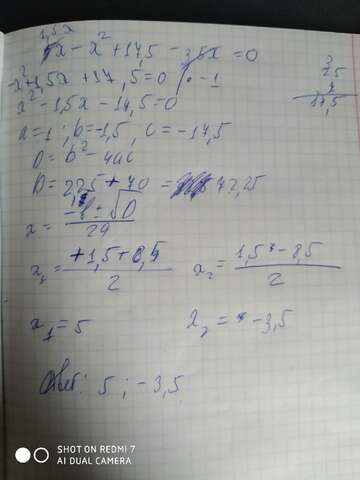 1,5x
5x - x² + 17,5 - 3,5x = 0
-x² + 1,5x + 17,5 = 0 | · -1
x² - 1,5x - 17,5 = 0
a = 1; b = -1,5, c = -17,5
D = b² - 4ac
D = 2,25 + 70 = 72,25
x = -b ± √D / 2a
x₁ = +1,5 + 8,5 / 2 x₂ = 1,5 - 8,5 / 2
x₁ = 5 x₂ = -3,5
Ответ: 5; -3,5
3
25
7
17,5
SHOT ON REDMI 7
AI DUAL CAMERA